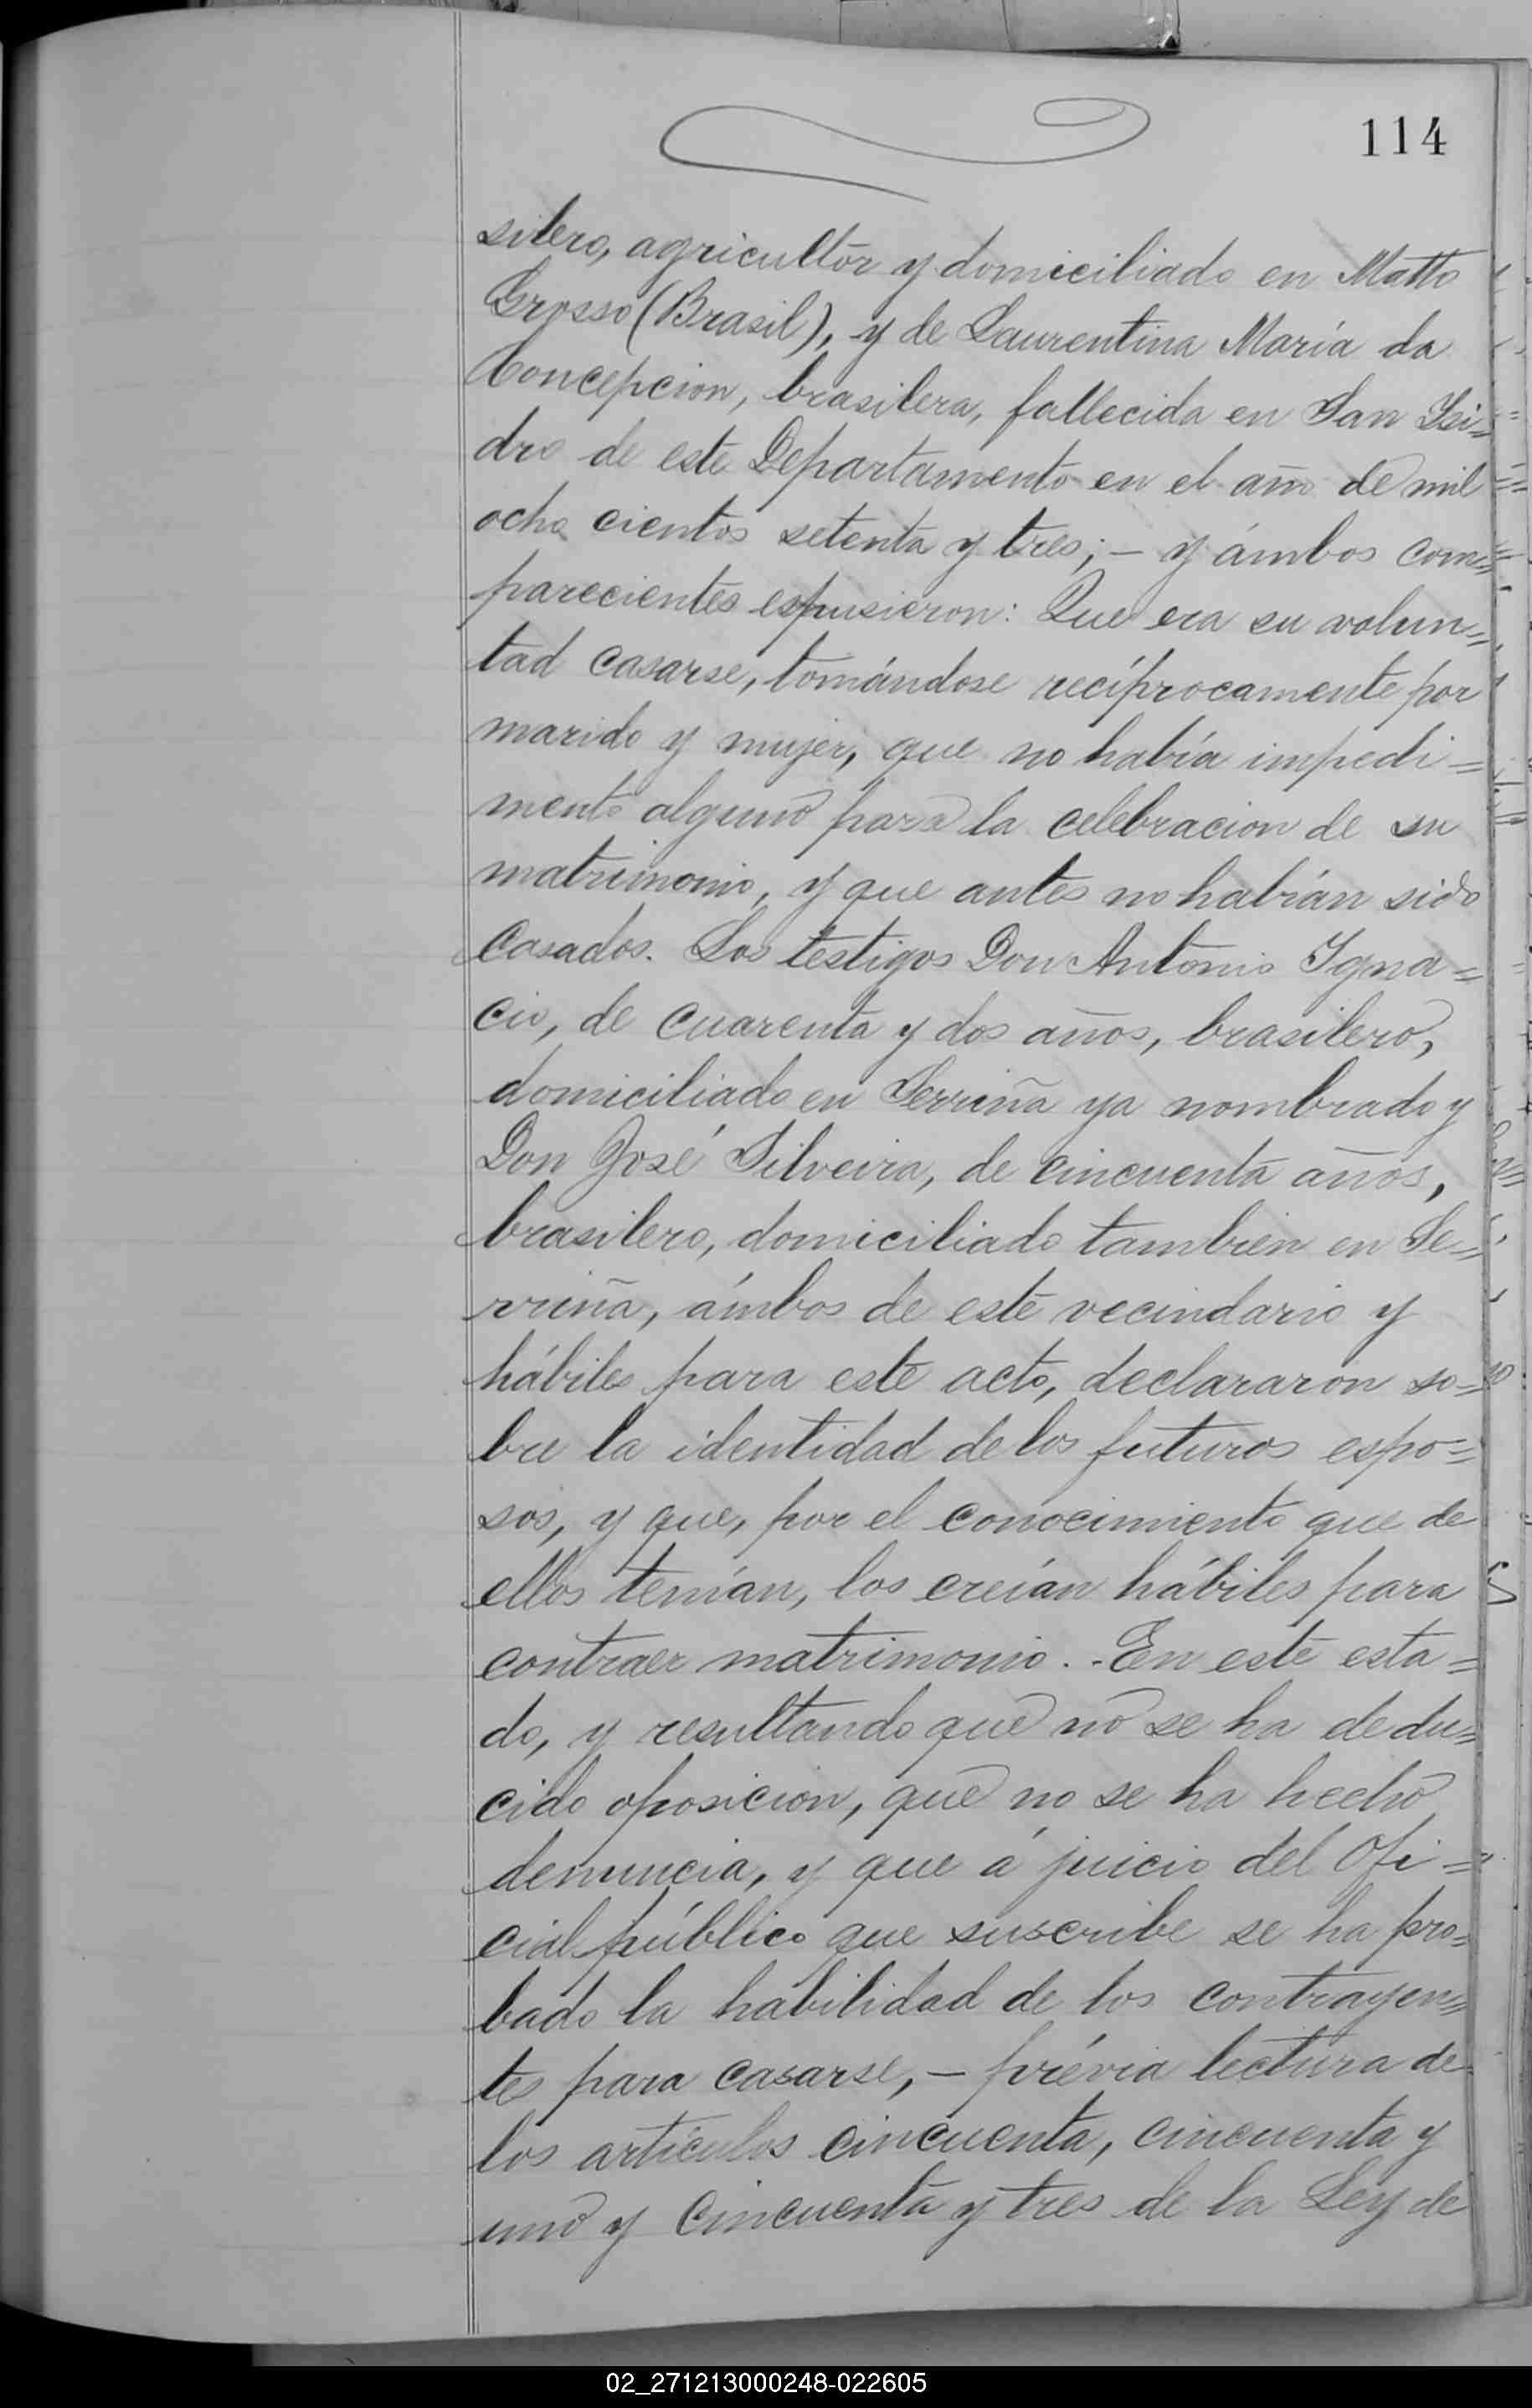 114
silero, agricultor y domiciliado en Matto
Grosso (Brasil), y de Laurentina María da
Concepcion, brasilera, fallecida en San Ysi=
dro de este Departamento en el año de mil
ocho cientos setenta y tres; — y ámbos com=
parecientes espusieron: Que era su volun=
tad casarse, tomándose recíprocamente por
marido y mujer, que no había impedi=
mento alguno para la celebracion de su
matrimonio, y que antes no habían sido
casados. Los testigos Don Antonio Ygna=
cio, de cuarenta y dos años, brasilero,
domiciliado en Serriña ya nombrado y
Don José Silveira, de cincuenta años,
brasilero, domiciliado tambien en Se=
rriña, ámbos de este vecindario y
hábiles para este acto, declararon so=
bre la identidad de los futuros espo=
sos, y que, por el conocimiento que de
ellos tenían, los creían hábiles para
contraer matrimonio. - En este esta=
do, y resultando que no se ha dedu=
cido oposicion, que no se ha hecho
denuncia, y que á juicio del Ofi=
cial público que suscribe se ha pro=
bado la habilidad de los contrayen=
tes para casarse, — prévia lectura de
los artículos cincuenta, cincuenta y
uno y cincuenta y tres de la Ley de
02_271213000248-022605